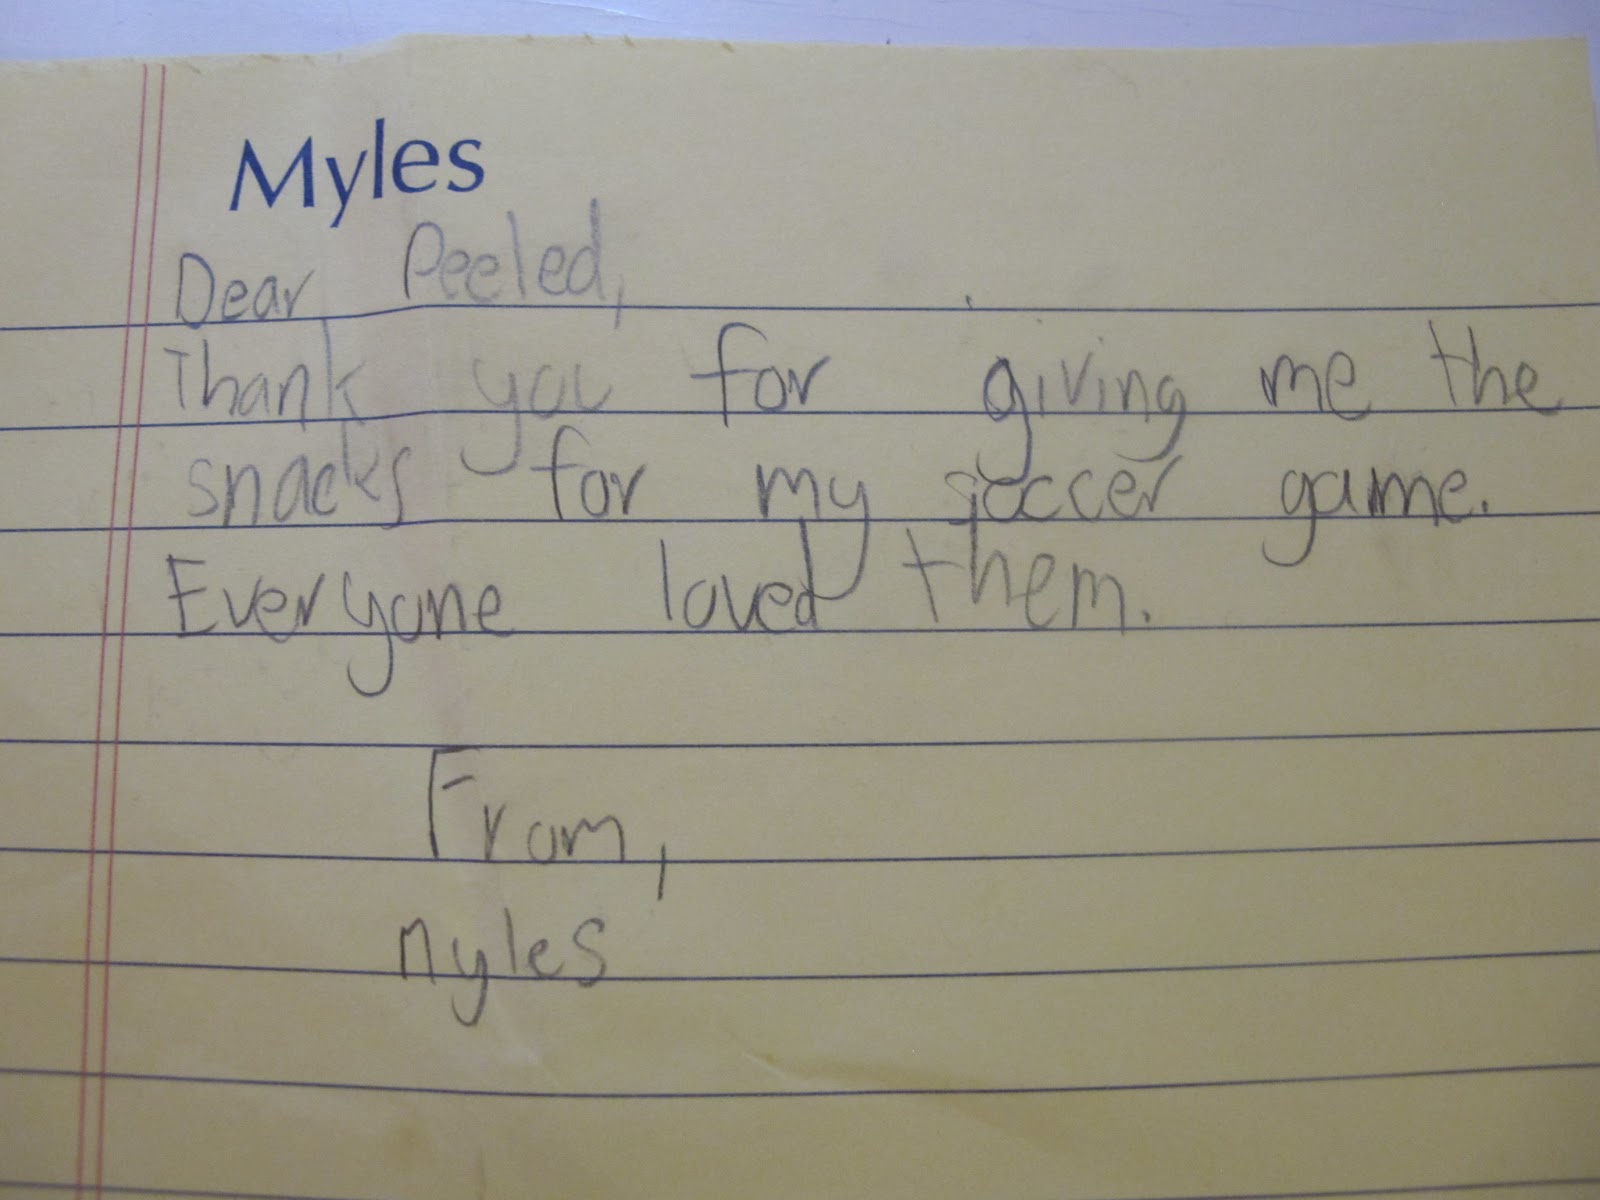 Myles
Dear Peeled,
Thank you for giving me the
snacks for my soccer game.
Everyone loved them.
From,
Myles